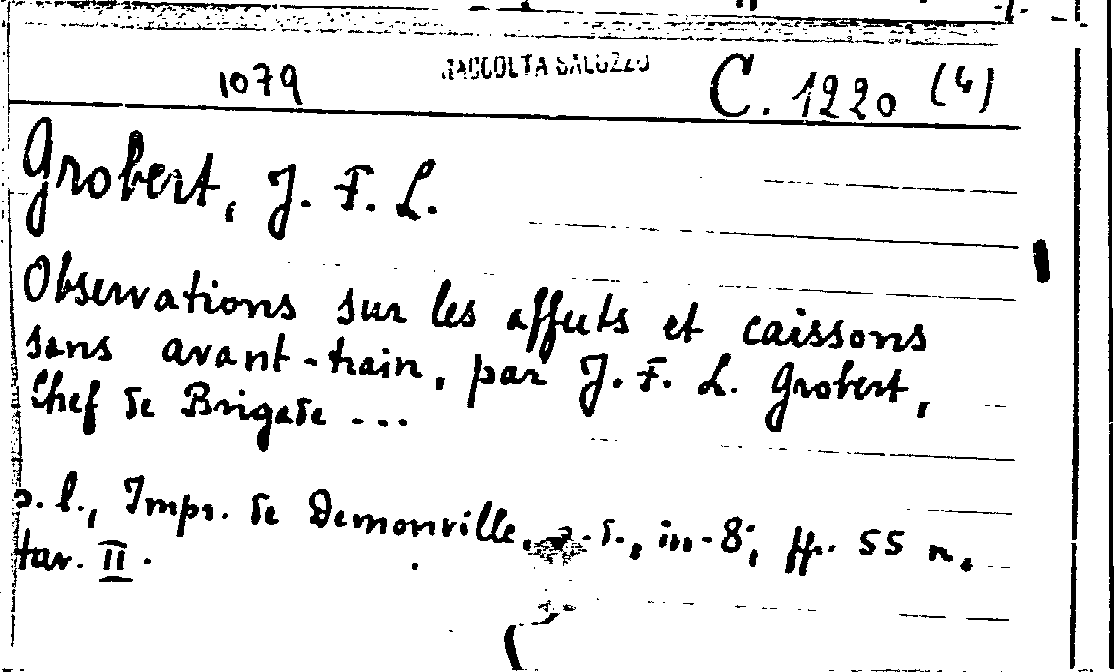 1079 RACCOLTA SALUZZO C. 1220 (4)
Grobert, J. F. L.
Observations sur les affuts et caissons
sans avant-train, par J. F. L. Grobert,
Chef de Brigade ...
s. l., Impr. de Demonville, s. d., in-8°, ff. 55 n.
tav. II.